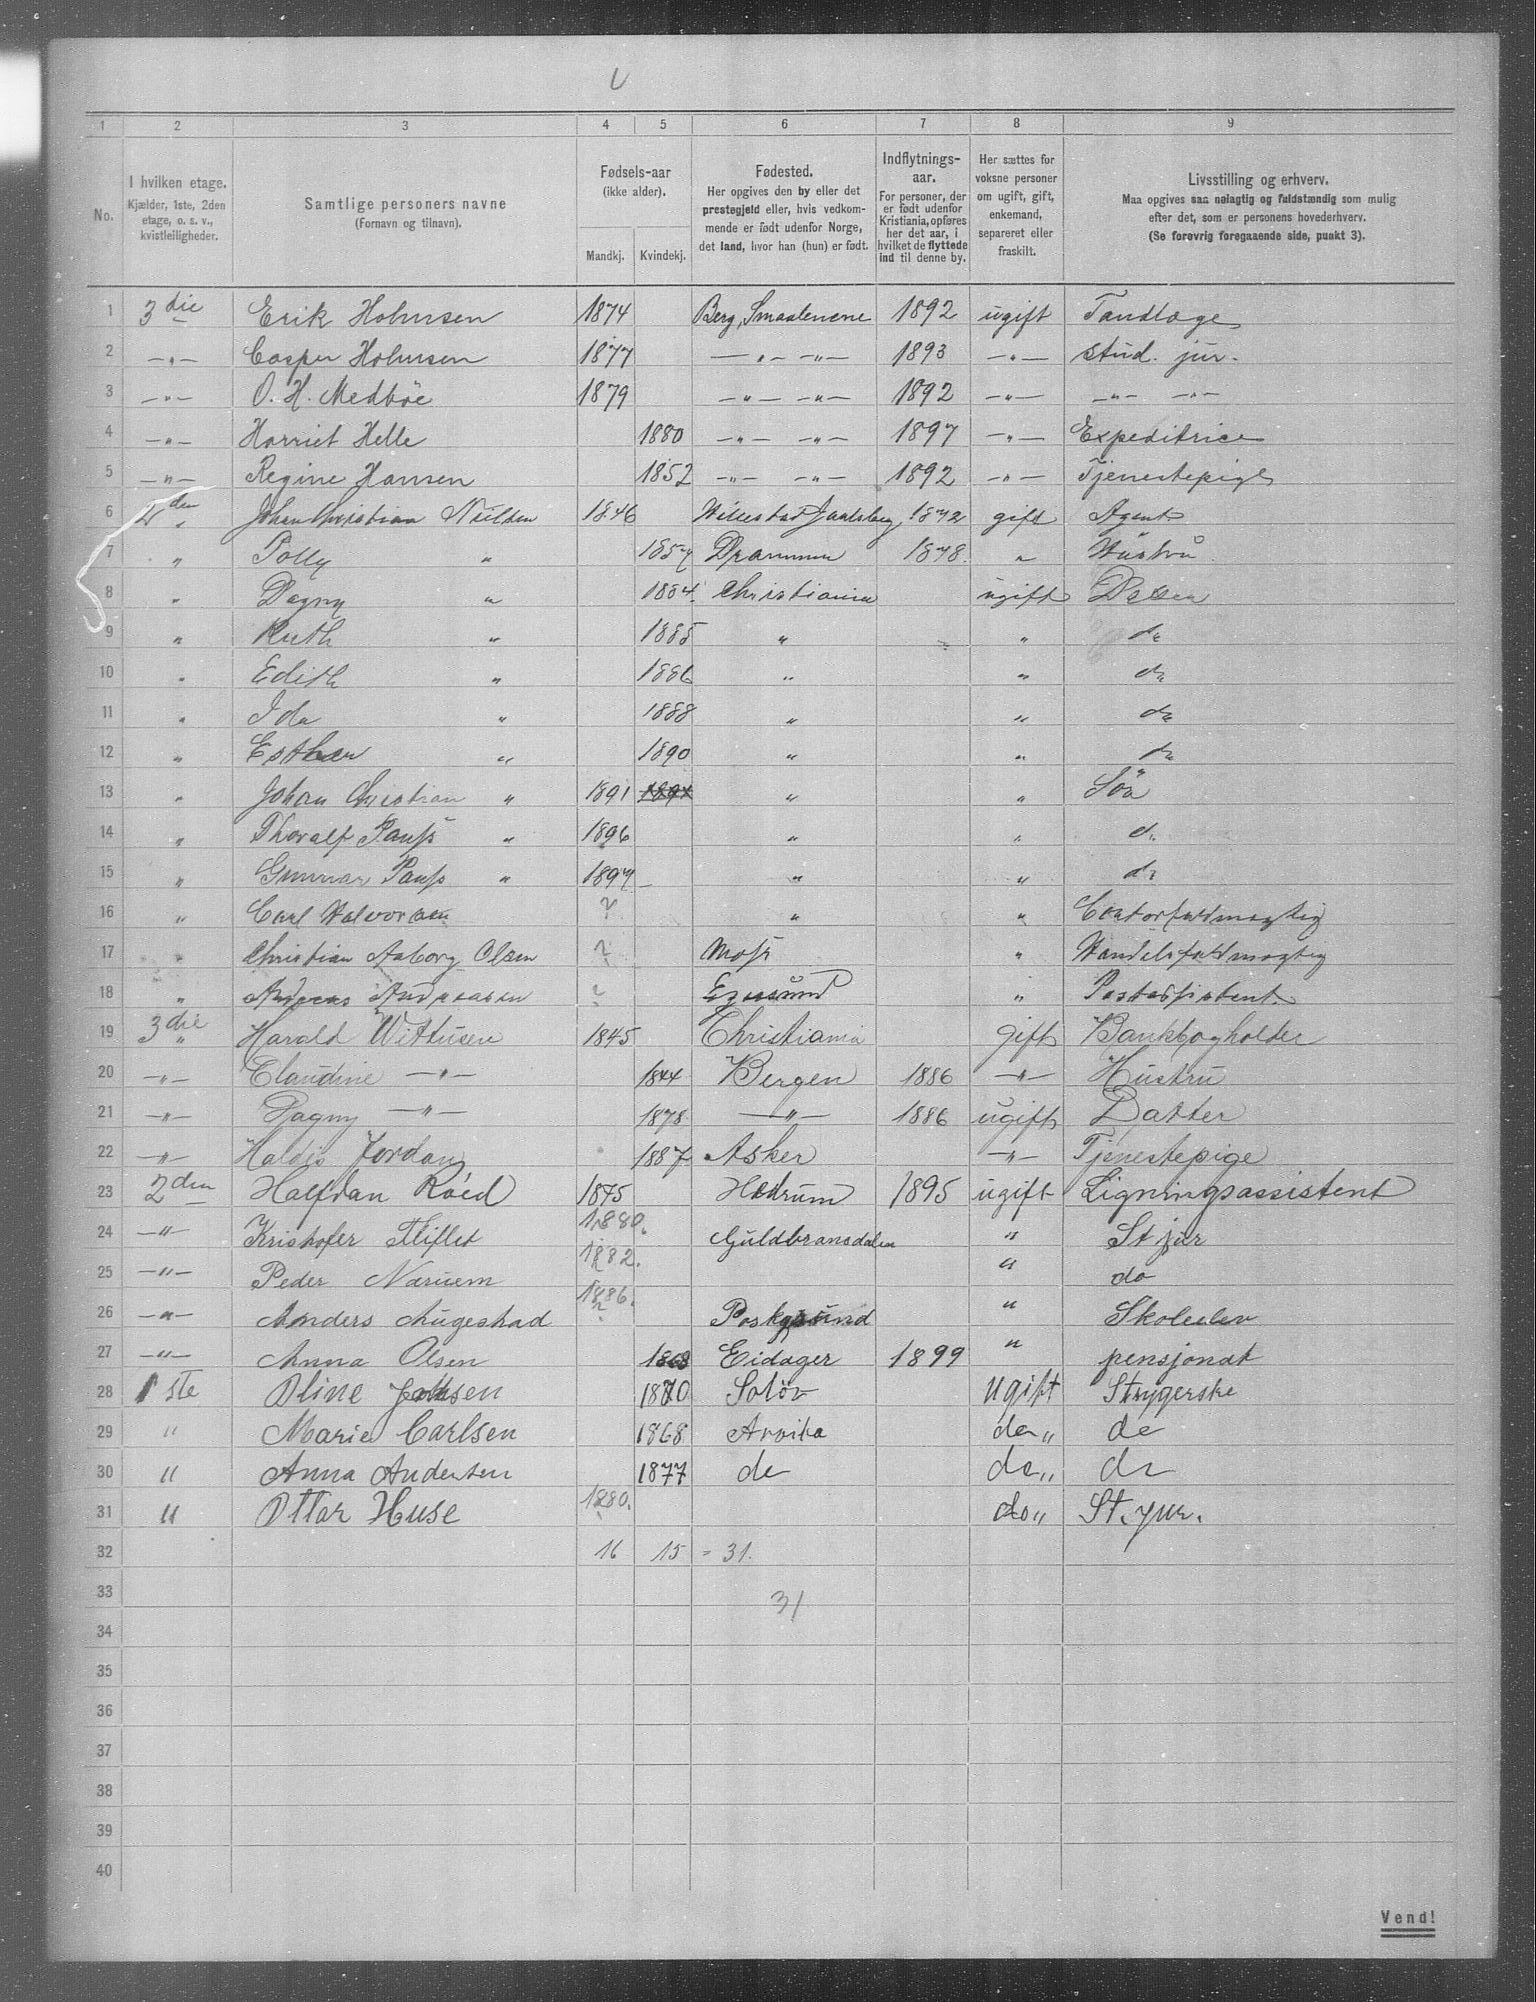 1 2 3 4 5 6 7 8 9
No.
I hvilken etage. Kjælder, 1ste, 2den etage, o. s. v., kvistleiligheder.
Samtlige personers navne (Fornavn og tilnavn).
Fødsels-aar (ikke alder). Mandkj. Kvindekj.
Fødested. Her opgives den by eller det prestegjeld eller, hvis vedkommende er født udenfor Norge, det land, hvor han (hun) er født.
Indflytnings-aar. For personer, der er født udenfor Kristiania, opføres her det aar, i hvilket de flyttede ind til denne by.
Her sættes for voksne personer om ugift, gift, enkemand, separeret eller fraskilt.
Livsstilling og erhverv. Maa opgives saa nøiagtig og fuldstændig som mulig efter det, som er personens hovederhverv. (Se forøvrig foregaaende side, punkt 3).
1 3die Erik Holmsen 1874 Berg, Smaalenene 1892 ugift Tandlæge
2 —"— Casper Holmsen 1877 —"— —"— 1893 —"— stud. jur.
3 —"— O. H. Medbøe 1879 —"— —"— 1892 —"— —"— —"—
4 —"— Harriet Helle 1880 —"— —"— 1897 —"— Expeditrice
5 —"— Regine Hansen 1852 —"— —"— 1892 —"— Tjenestepige
6 den " Johan Christian Nielsen 1846 1872 gift Agent
7 " Polly " 1857 Drammen 1878 " Hustru
8 " Dagny " 1884. Christiania ugift Datter
9 " Ruth " 1885 " " do
10 " Edith " 1886 " " do
11 " Ida " 1888 " " do
12 " Esther " 1890 " " do
13 " Johan Christian " 1891 1891 " " Søn
14 " Thoralf Pauss " 1896 " " do
15 " Gunnar Pauss " 1897 " " do
16 " Carl Halvorsen ? " " Contorfuldmægtig
17 " Christian Aaborg Olsen ? Moss " Handelsfuldmægtig
18 " Andreas Andreasen ? Egersund " Postassistent
19 3die " Harald Wittusen 1845 Christiania gift Bankbogholder
20 —"— Claudine —"— 1844 Bergen 1886 —"— Hustru
21 —"— Dagny —"— 1878 —"— 1886 ugift Datter
22 —"— Haldis Jordan 1887 Asker —"— Tjenestepige
23 2den Halfdan Röed 1875 Hedrum 1895 ugift Ligningsassistent
24 —"— Kristofer 1880. Guldbransdalen " St jur
25 —"— Peder 1882. " do
26 —"— Anders Augestad 1886. Poskgrund " Skoleelev
27 —"— Anna Olsen 1868 Eidager 1899 " pensjonat
28 1ste Oline 1870 Solør Ugift Strygerske
29 " Marie Carlsen 1868 Arvika do " do
30 " Anna Andersen 1877 do do " do
31 " Ottar Huse 1880. do " St. jur.
32 16 15 = 31.
33 31
34
35
36
37
38
39
40
Vend!